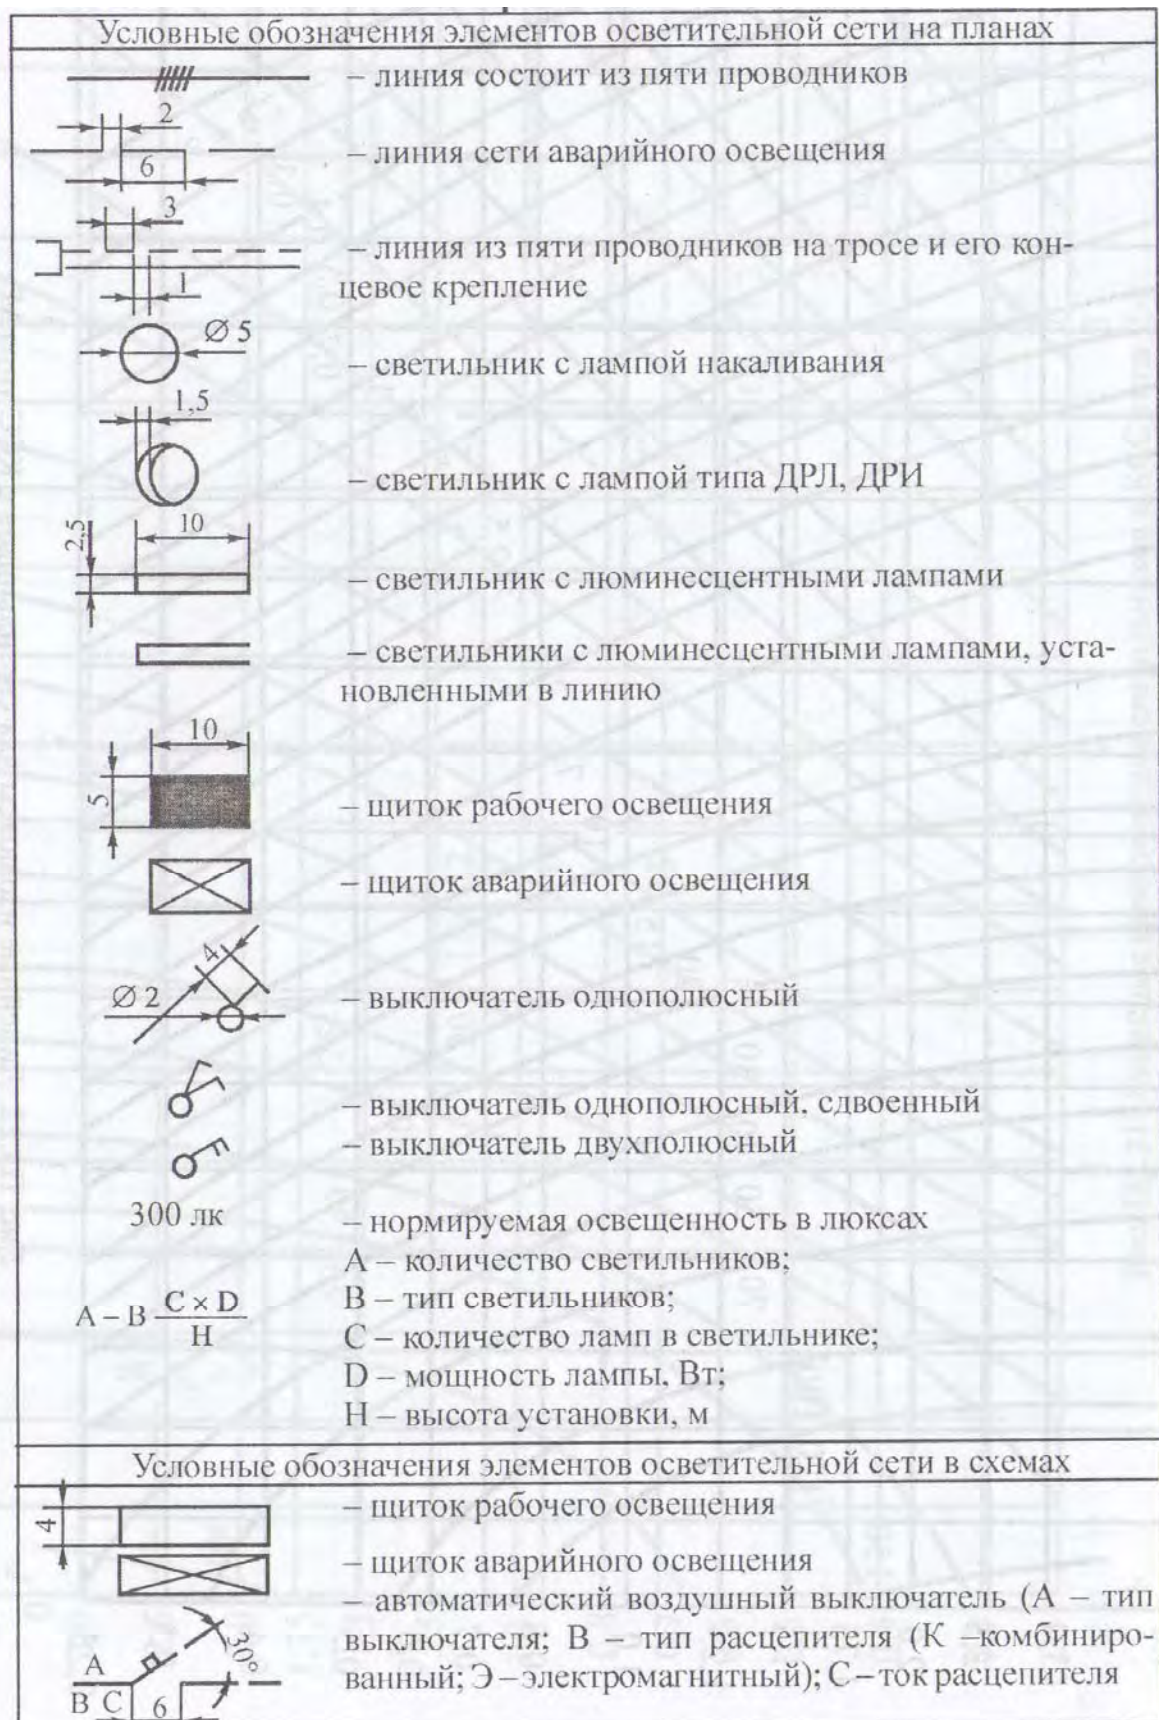 Условные обозначения элементов осветительной сети на планах
– линия состоит из пяти проводников
2
– линия сети аварийного освещения
6
3
– линия из пяти проводников на тросе и его кон-
цевое крепление
1
Ø 5
– светильник с лампой накаливания
1,5
– светильник с лампой типа ДРЛ, ДРИ
2,5
10
– светильник с люминесцентными лампами
– светильники с люминесцентными лампами, уста-
новленными в линию
10
5
– щиток рабочего освещения
– щиток аварийного освещения
4
Ø 2
– выключатель однополюсный
– выключатель однополюсный, сдвоенный
– выключатель двухполюсный
300 лк – нормируемая освещенность в люксах
A – B C × D / H
А – количество светильников;
В – тип светильников;
С – количество ламп в светильнике;
D – мощность лампы, Вт;
Н – высота установки, м
Условные обозначения элементов осветительной сети в схемах
4
– щиток рабочего освещения
– щиток аварийного освещения
– автоматический воздушный выключатель (А – тип
выключателя; В – тип расцепителя (К –комбиниро-
ванный; Э–электромагнитный); С–ток расцепителя
30°
A
B C
6